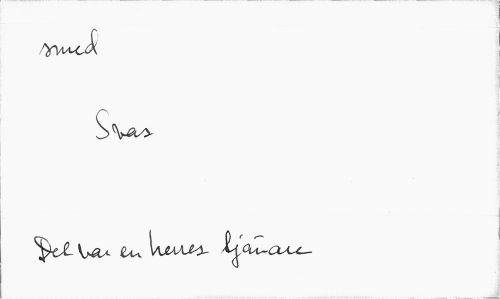 smed
Svas
Det var en herres tjänare